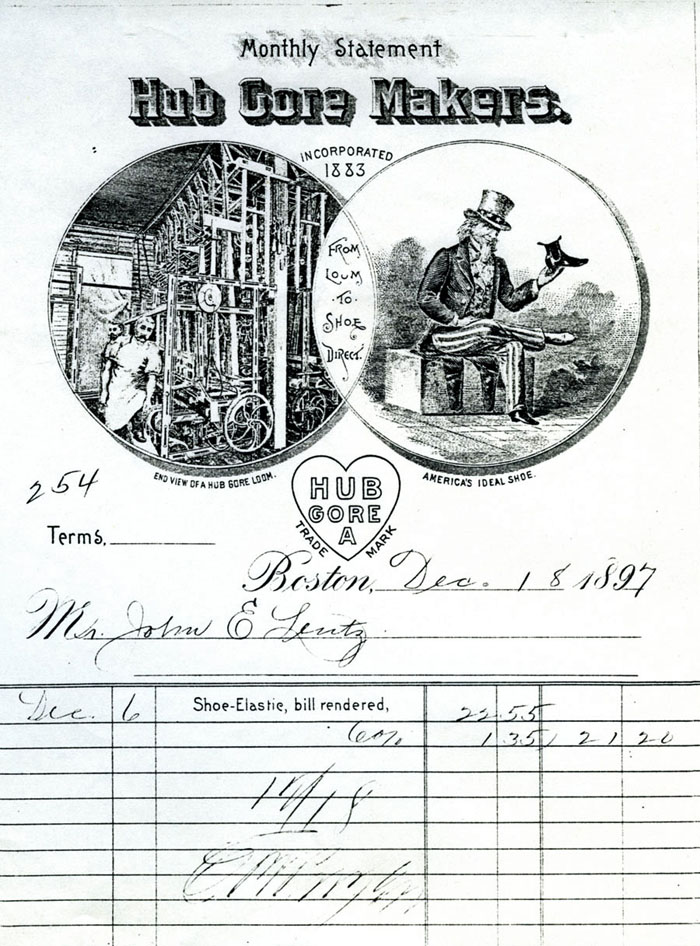 Monthly Statement
Hub Gore Makers.
INCORPORATED
1883
FROM
LOOM
·TO·
SHOE
DIRECT.
END VIEW OF A HUB GORE LOOM.
AMERICA'S IDEAL SHOE.
254
HUB
GORE
A
TRADE MARK
Terms,
Boston, Dec. 18 1897
Mr. John E Lentz
Dec. 6 Shoe-Elastic, bill rendered, 22 55
6% 1 35 21 20